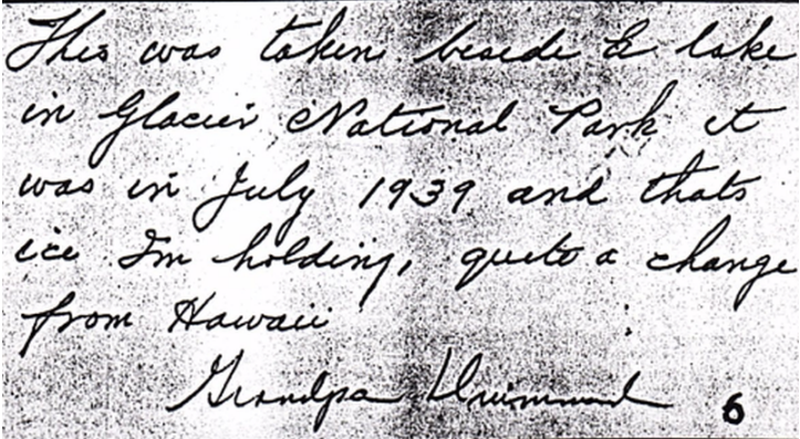 This was taken beside a lake
in Glacier National Park it
was in July 1939 and thats
ice Im holding, quite a change
from Hawaii
Grandpa Drummond 6